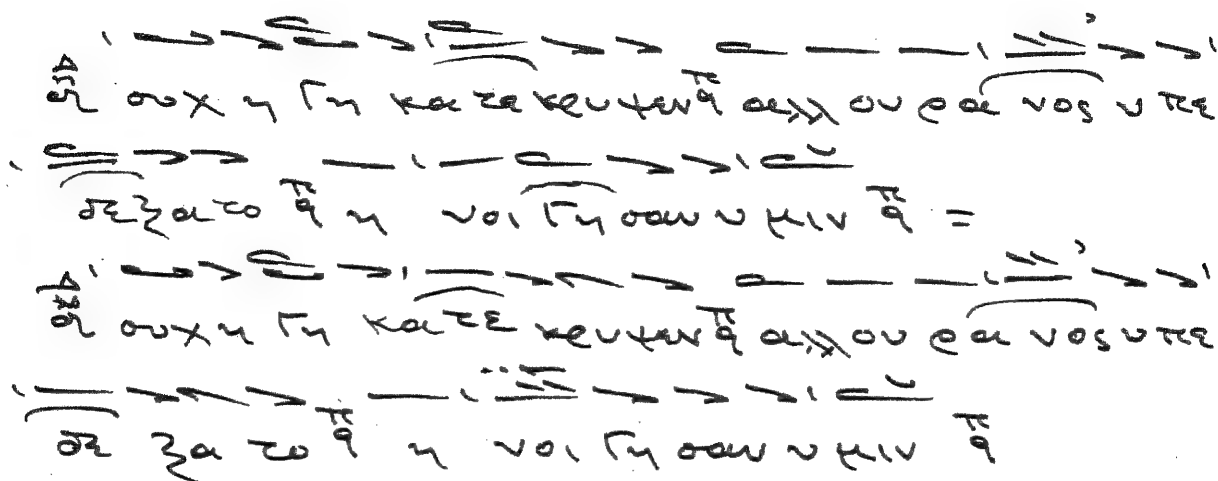 ουχ η Γη κα τε κρυ ψεν πα αλλ ου ρα νος υ πε
δε ξα το πα η νοι Γη σαν υ μιν πα =
ουχ η Γη κα τε κρυ ψεν πα αλλ ου ρα νος υ πε
δε ξα το πα η νοι Γη σαν υ μιν πα